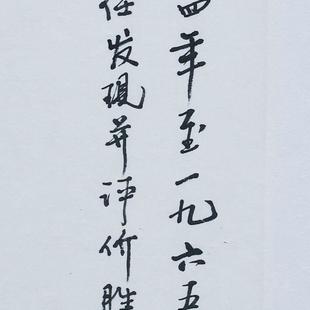 四年至一九六五
任发现并评价胜